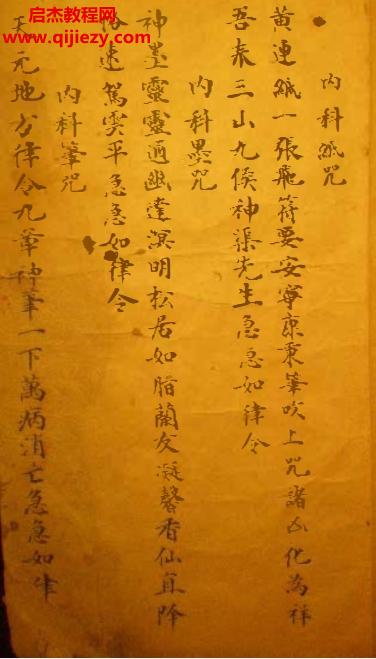 启杰教程网
www.qijiezy.com
内科紙咒
黄連紙一張飛符要安寧 秉筆吹上咒諸凶化為祥
吾奉三山九侯神 先生急急如律令
内科墨咒
神墨靈靈通幽達溟明松居如脂蘭友凝馨香仙真降
速駕雲平急急如律令
内科筆咒
天元地方律令九章神筆一下萬病消亡急急如律